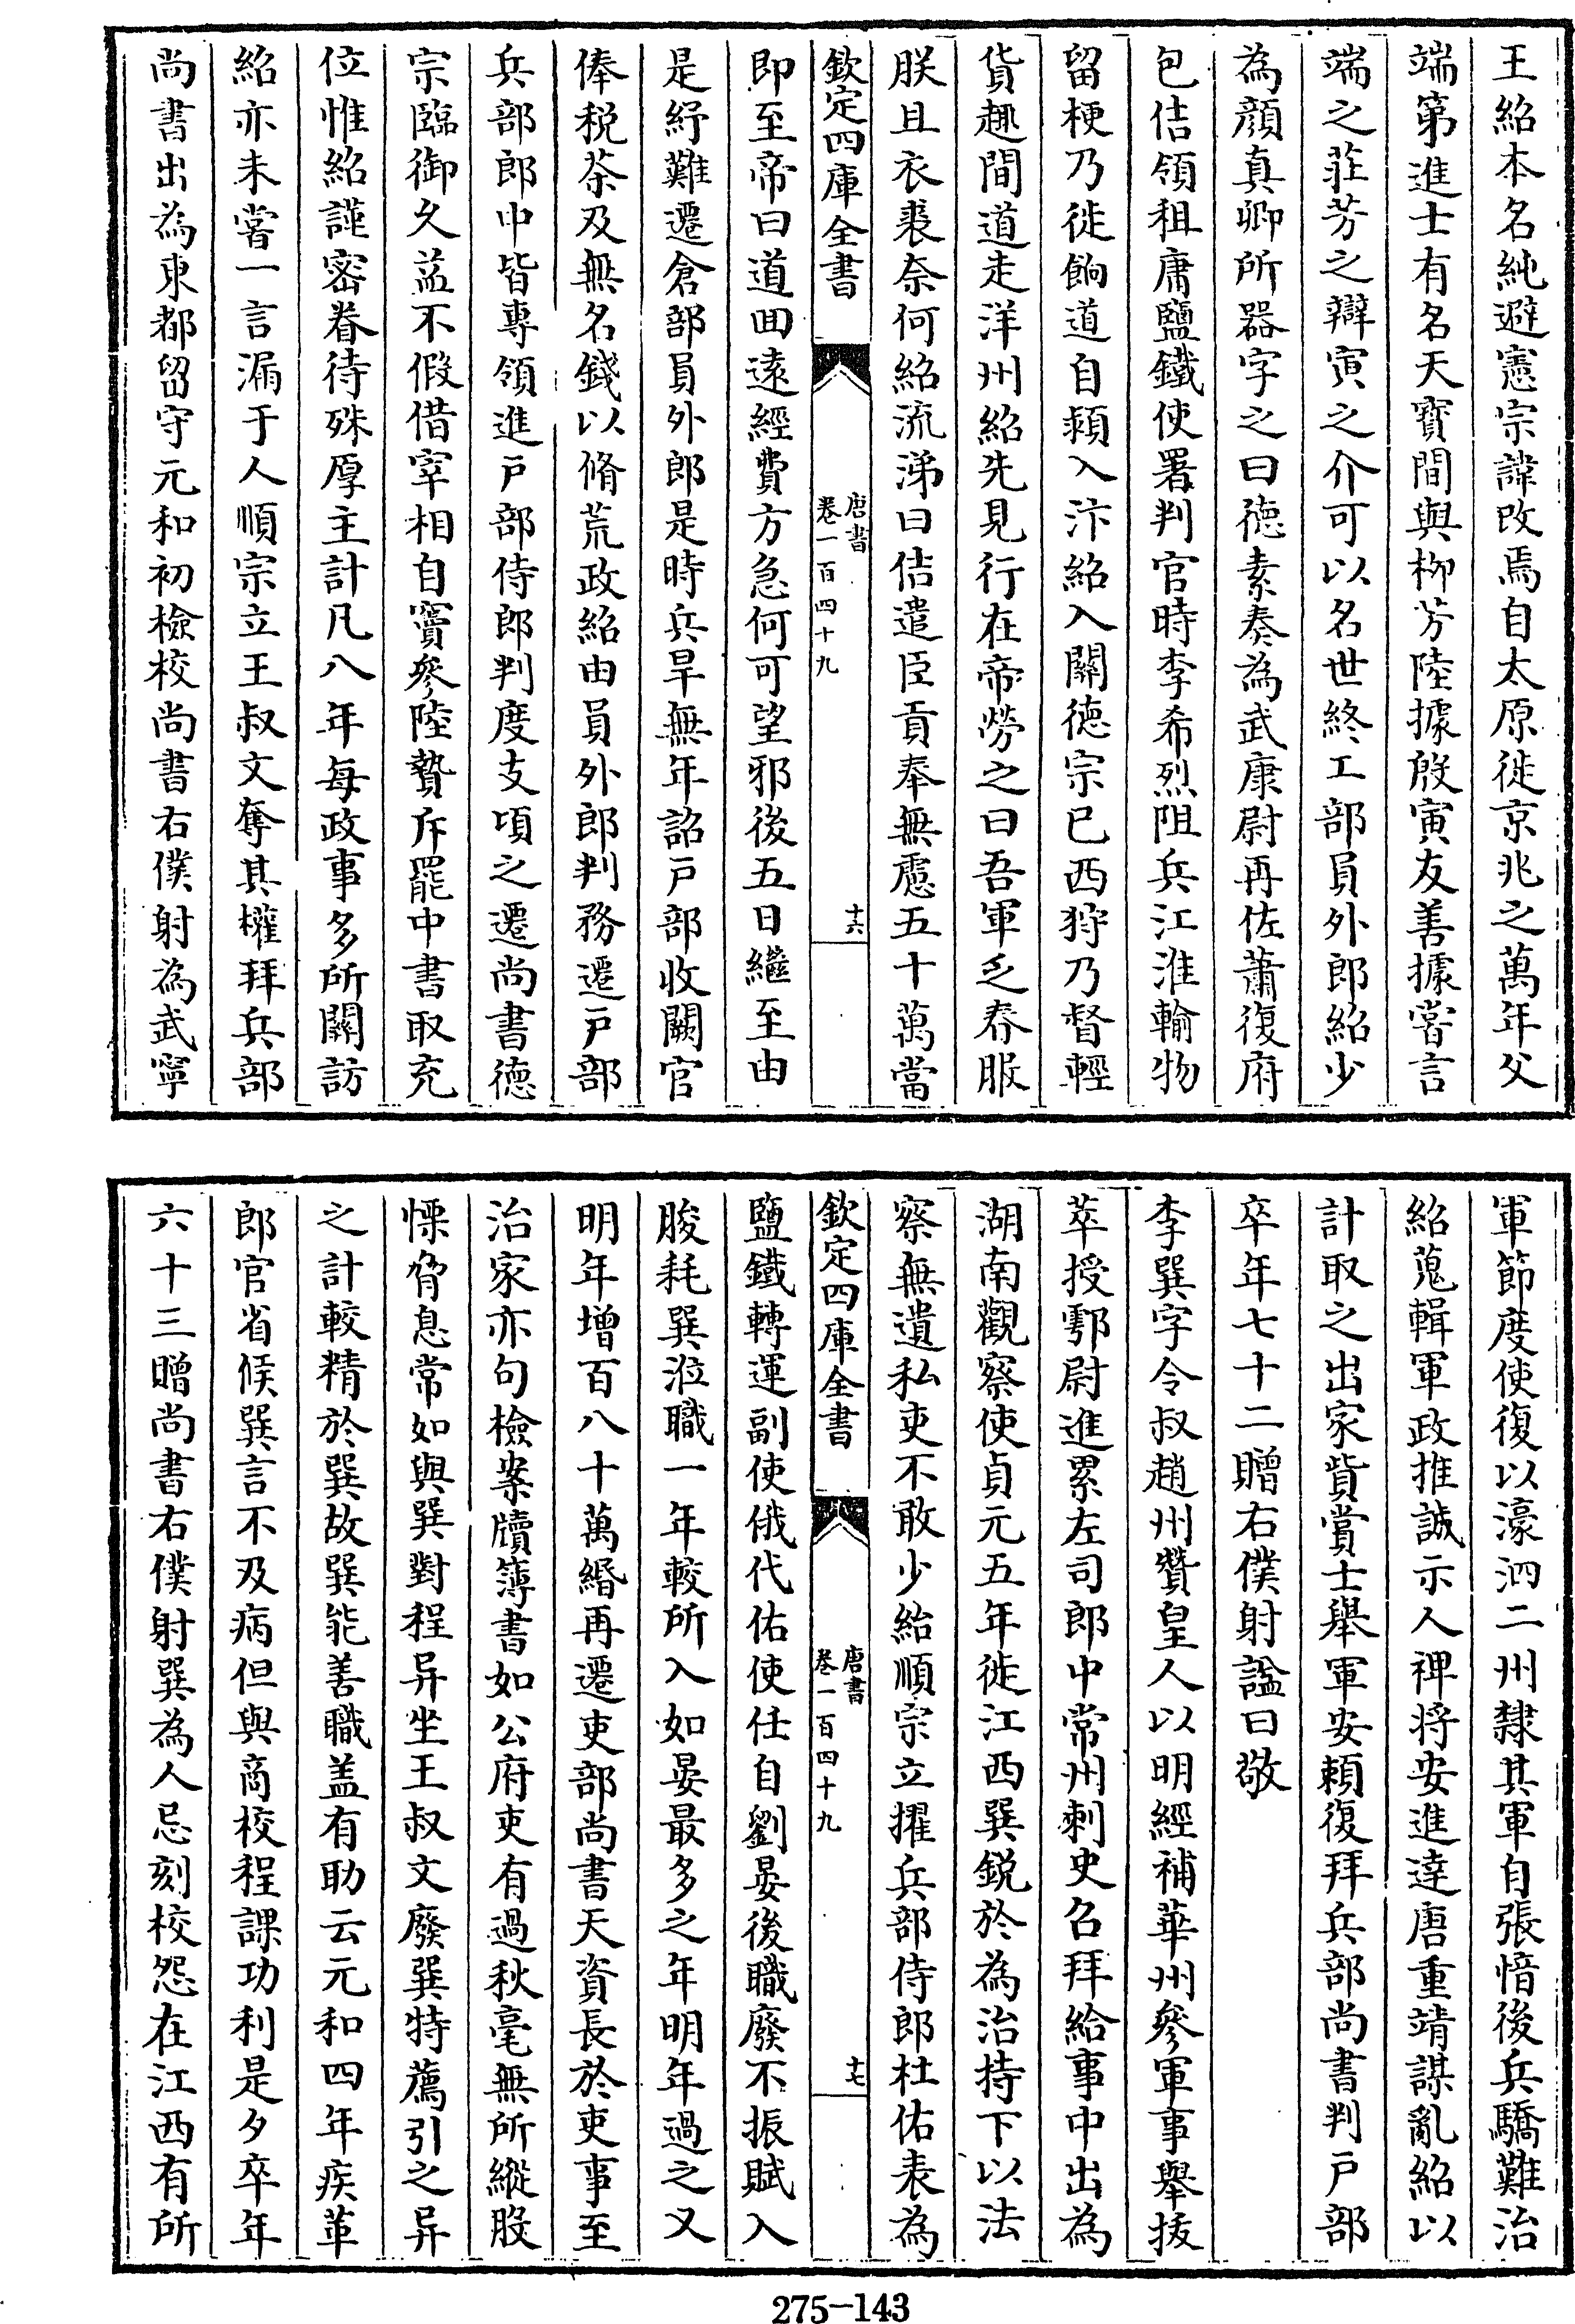 王紹本名純避憲宗諱改焉自太原徙京兆之萬年父
端第進士有名天寶間與柳芳陸據殷寅友善據嘗言
端之莊芳之辯寅之介可以名世終工部員外郎紹少
為顏真卿所器字之曰德素奏為武康尉再佐蕭復府
包佶領租庸鹽鐵使署判官時李希烈阻兵江淮輸物
留梗乃徙餉道自潁入汴紹入關德宗已西狩乃督輕
貨趣間道走洋州紹先見行在帝勞之曰吾軍乏春服
朕且衣裘奈何紹流涕曰佶遣臣貢奉無慮五十萬當
欽定四庫全書
唐書
卷一百四十九
十六
即至帝曰道回遠經費方急何可望邪後五日繼至由
是紓難遷倉部員外郎是時兵旱無年詔戶部收闕官
俸稅茶及無名錢以脩荒政紹由員外郎判務遷戶部
兵部郎中皆專領進戶部侍郎判度支頃之遷尚書德
宗臨御久益不假借宰相自竇參陸贄斥罷中書取充
位惟紹謹密眷待殊厚主計凡八年每政事多所關訪
紹亦未嘗一言漏于人順宗立王叔文奪其權拜兵部
尚書出為東都留守元和初檢校尚書右僕射為武寧
軍節度使復以濠泗二州隸其軍自張愔後兵驕難治
紹蒐輯軍政推誠示人裨將安進達唐重靖謀亂紹以
計取之出家貲賞士舉軍安賴復拜兵部尚書判戶部
卒年七十二贈右僕射諡曰敬
李巽字令叔趙州贊皇人以明經補華州參軍事舉拔
萃授鄠尉進累左司郎中常州刺史召拜給事中出為
湖南觀察使貞元五年徙江西巽銳於為治持下以法
察無遺私吏不敢少紿順宗立擢兵部侍郎杜佑表為
欽定四庫全書
唐書
卷一百四十九
十七
鹽鐵轉運副使俄代佑使任自劉晏後職廢不振賦入
朘耗巽涖職一年較所入如晏最多之年明年過之又
明年增百八十萬緡再遷吏部尚書天資長於吏事至
治家亦句檢案牘簿書如公府吏有過秋毫無所縱股
慄脅息常如與巽對程异坐王叔文廢巽特薦引之异
之計較精於巽故巽能善職蓋有助云元和四年疾革
郎官省候巽言不及病但與商校程課功利是夕卒年
六十三贈尚書右僕射巽為人忌刻校怨在江西有所
275-143